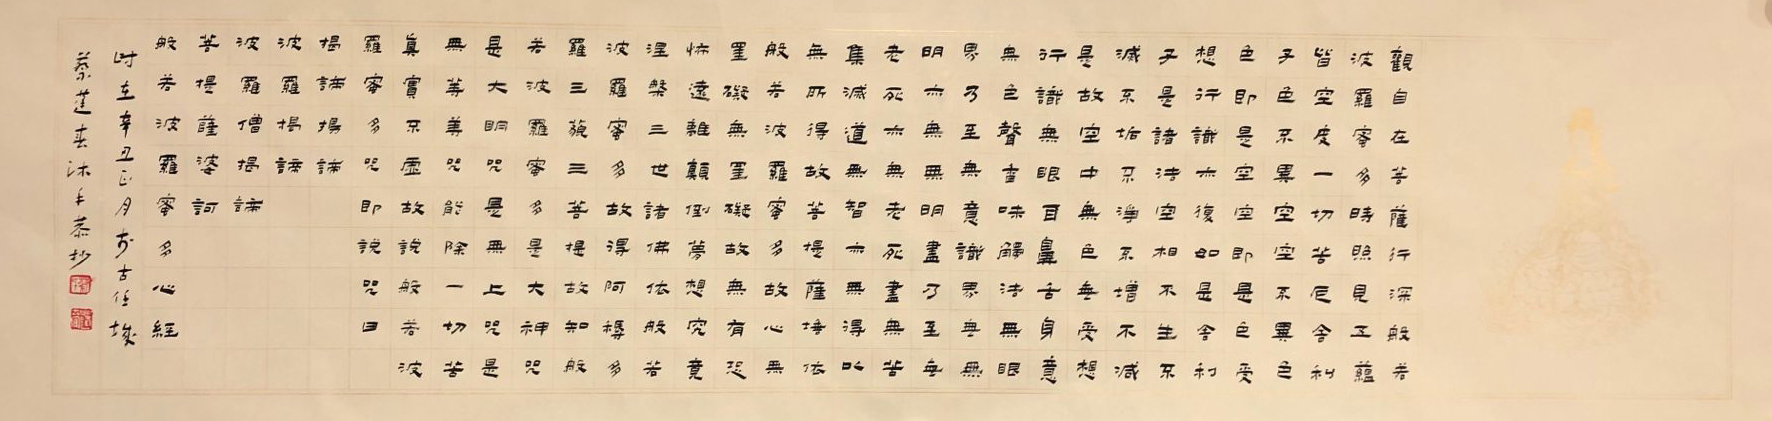 觀自在菩薩行深般若
波羅蜜多時照見五蘊
皆空度一切苦厄舍利
子色不異空空不異色
色即是空空即是色受
想行識亦復如是舍利
子是諸法空相不生不
滅不垢不淨不增不減
是故空中無色無受想
行識無眼耳鼻舌身意
無色聲香味觸法無眼
界乃至無意識界無無
明亦無無明盡乃至無
老死亦無老死盡無苦
集滅道無智亦無得以
無所得故菩提薩埵依
般若波羅蜜多故心無
罣礙無罣礙故無有恐
怖遠離顛倒夢想究竟
涅槃三世諸佛依般若
波羅蜜多故得阿耨多
羅三藐三菩提故知般
若波羅蜜多是大神咒
是大明咒是無上咒是
無等等咒能除一切苦
真實不虛故說般若波
羅蜜多咒即說咒曰
揭諦揭諦
波羅揭諦
波羅僧揭諦
菩提薩婆訶
般若波羅蜜多心經
时在辛丑正月於古任城
蔡莲春沐手恭抄